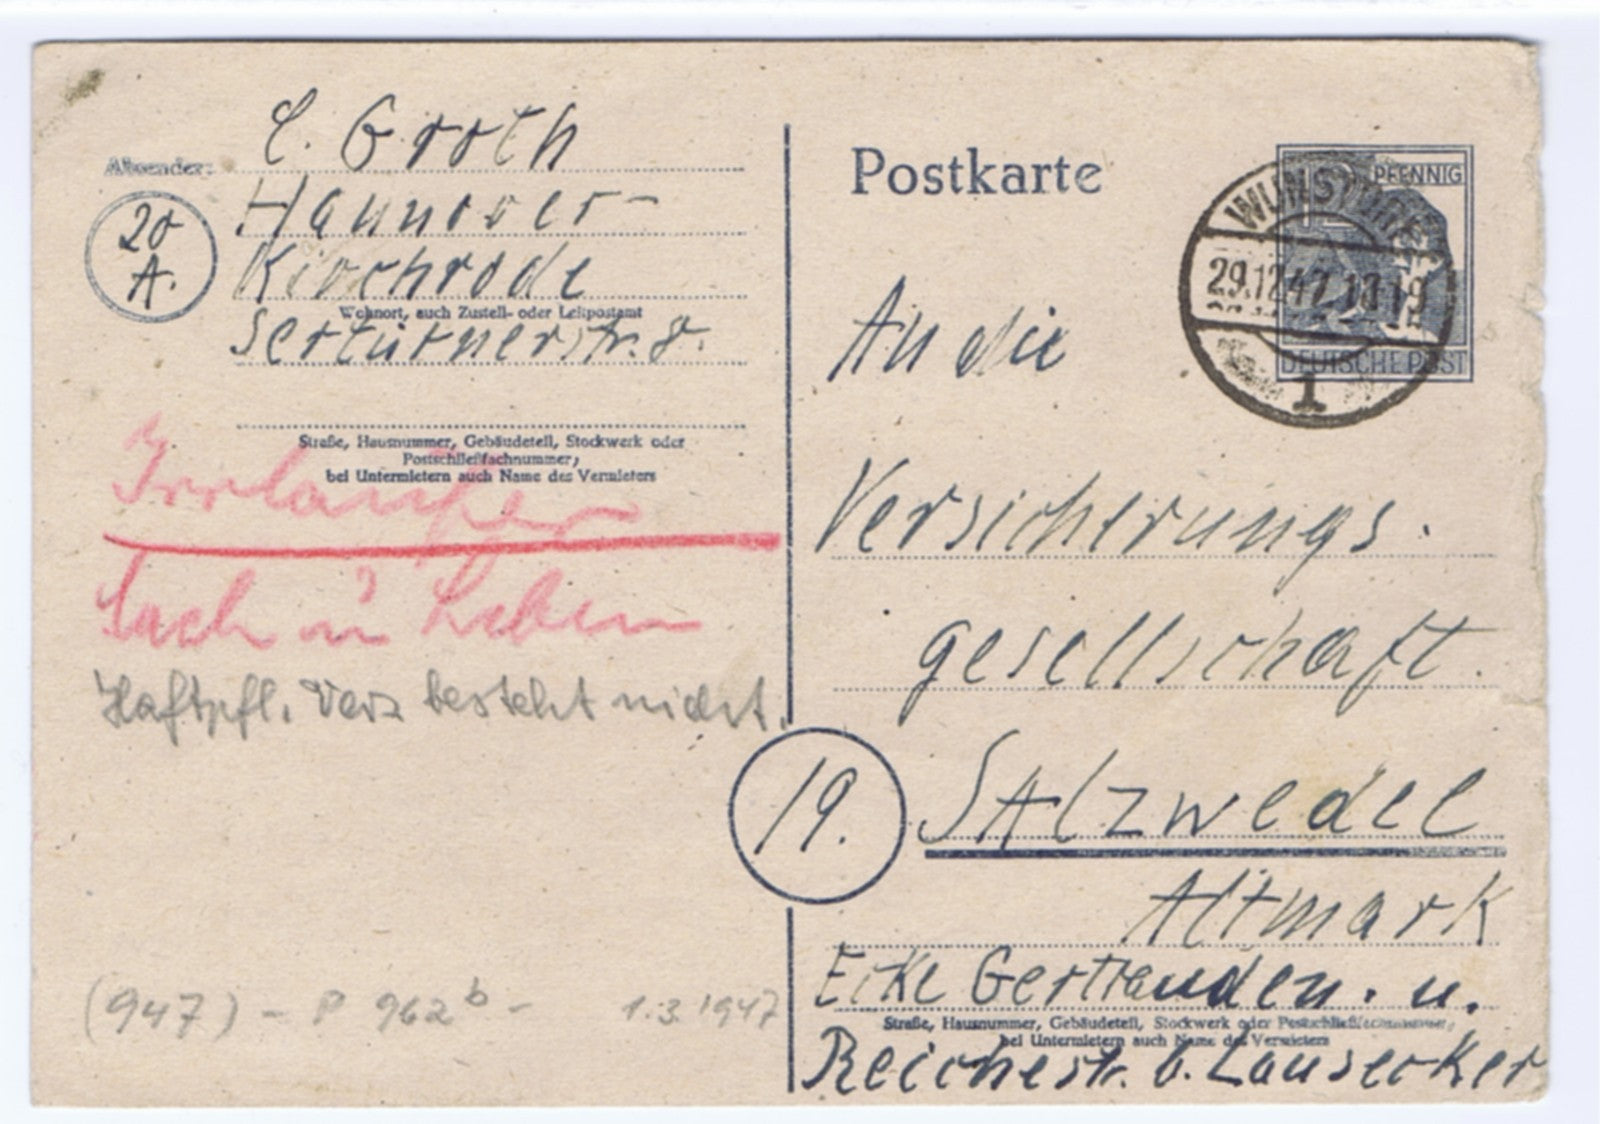 C. Groth
Absender:
20
A.
Hannover-
Kirchrode
Wohnort, auch Zustell- oder Leitpostamt
Sertürnerstr. 8.
Straße, Hausnummer, Gebäudeteil, Stockwerk oder
Postschließfachnummer;
bei Untermietern auch Name des Vermieters
Irrläufer
Sach u Leben
Haftpfl. Vers besteht nicht.
(947) - P 962 b - 1.3.1947
Postkarte
PFENNIG
DEUTSCHE POST
WUNSTORF
29.12.47.18-19
1
An die
Versicherungs-
gesellschaft.
19.
Salzwedel
Altmark
Ecke Gertrauden. u.
Straße, Hausnummer, Gebäudeteil, Stockwerk oder Postschließfachnummer;
bei Untermietern auch Name des Vermieters
Reichestr. b. Lausecker